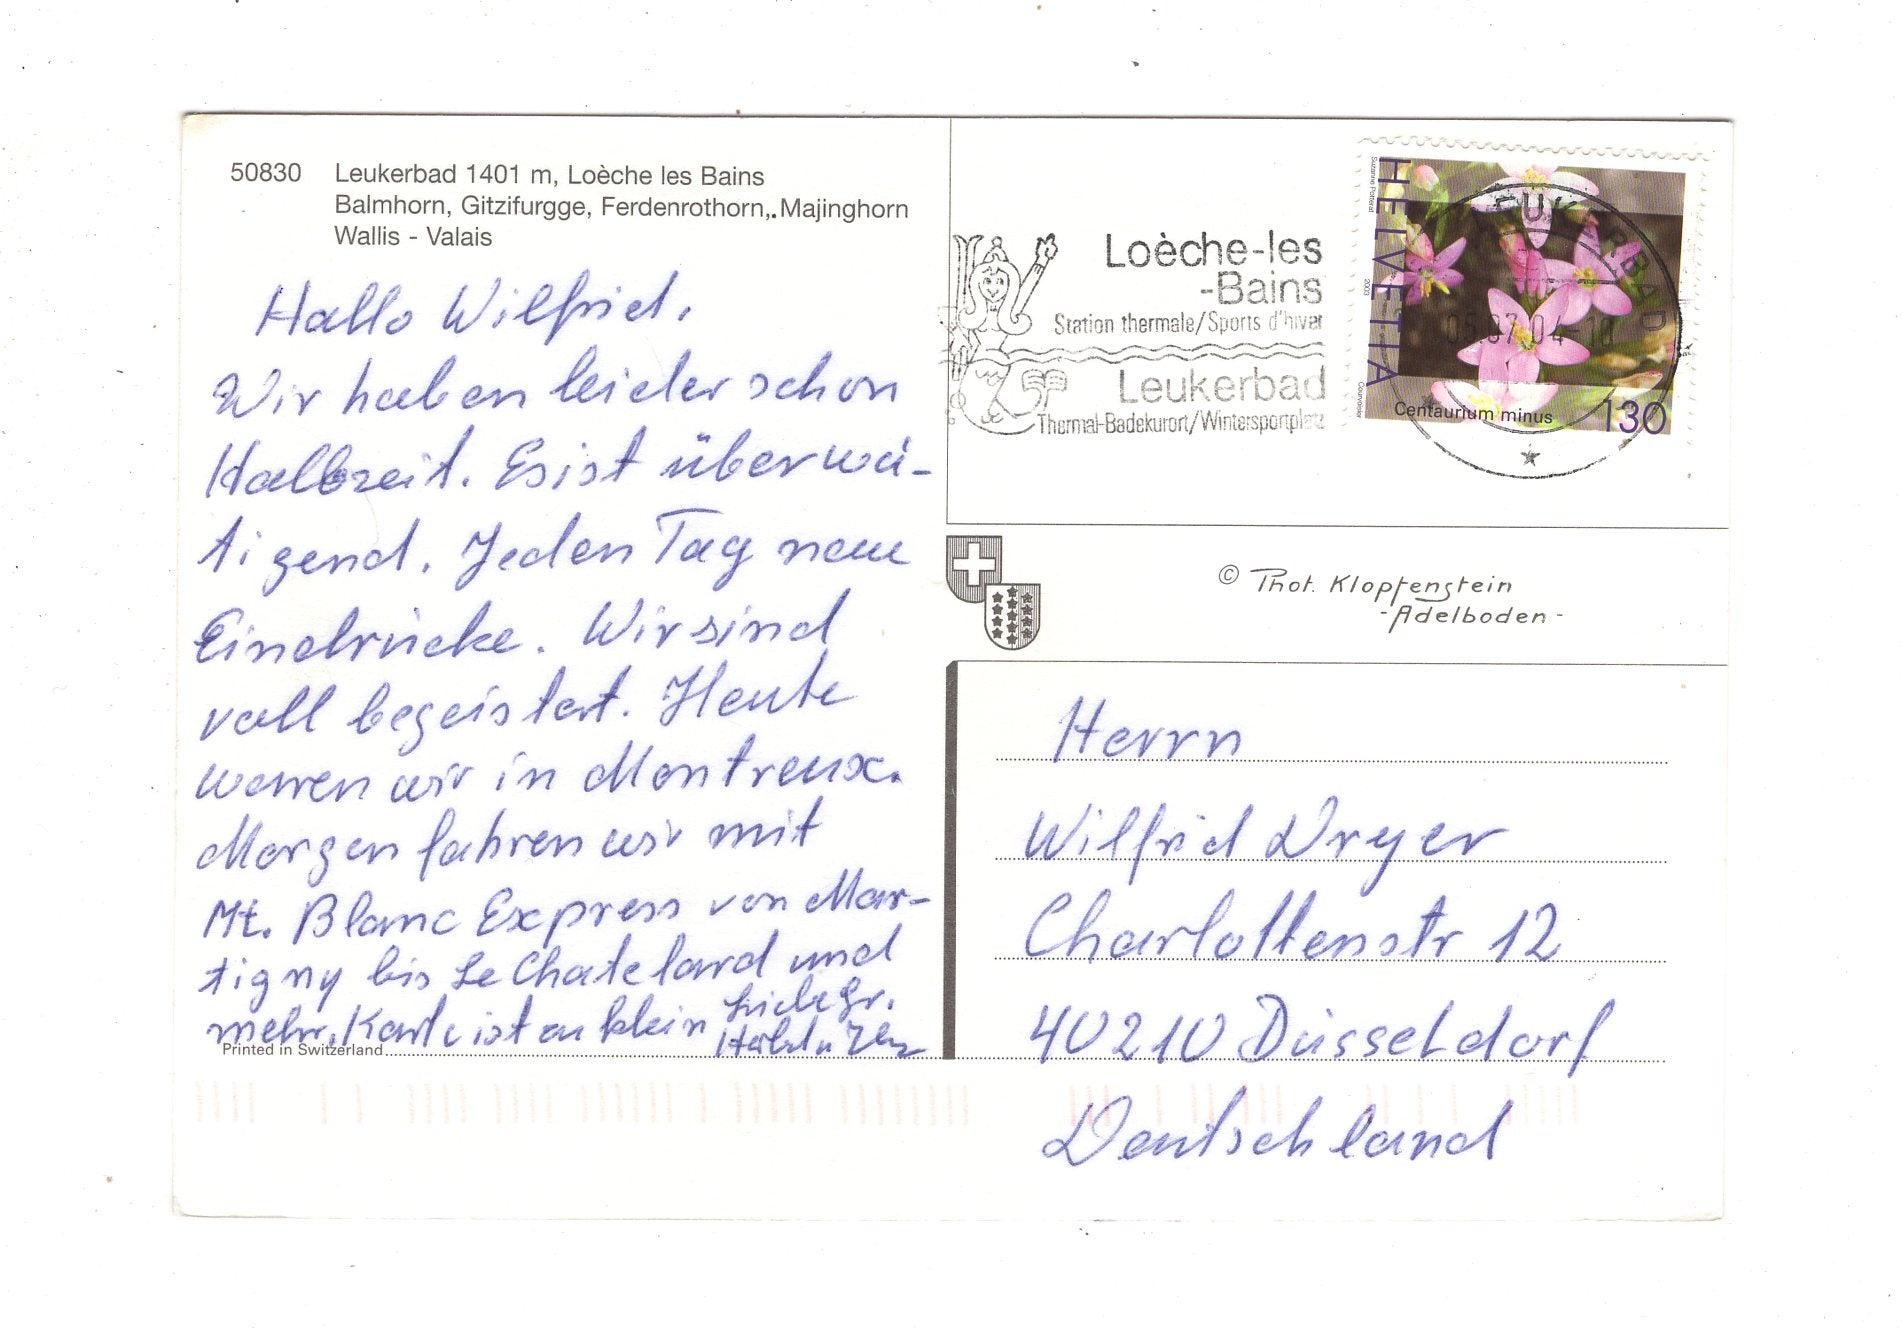 50830 Leukerbad 1401 m, Loèche les Bains
Balmhorn, Gitzifurgge, Ferdenrothorn, Majinghorn
Wallis - Valais
Hallo Wilfrid,
Wir haben leider schon
Halbzeit. Es ist überwä-
tigend. Jeden Tag neue
Eindrücke. Wir sind
voll begeistert. Heute
waren wir in Montreux.
Morgen fahren wir mit
Mt. Blanc Express von Mar-
tigny bis Le Chatelard und
mehr, Karte ist zu klein
Printed in Switzerland
Loèche-les
-Bains
Station thermale/Sports d'hiver
Leukerbad
Thermal-Badekurort/Wintersportplatz
HELVETIA
2003
Centaurium minus
130
LEUKERBAD
05.07.04-18
© Phot. Klopfenstein
-Adelboden-
Herrn
Wilfrid Dreyer
Charlottenstr 12
40210 Düsseldorf
Deutschland